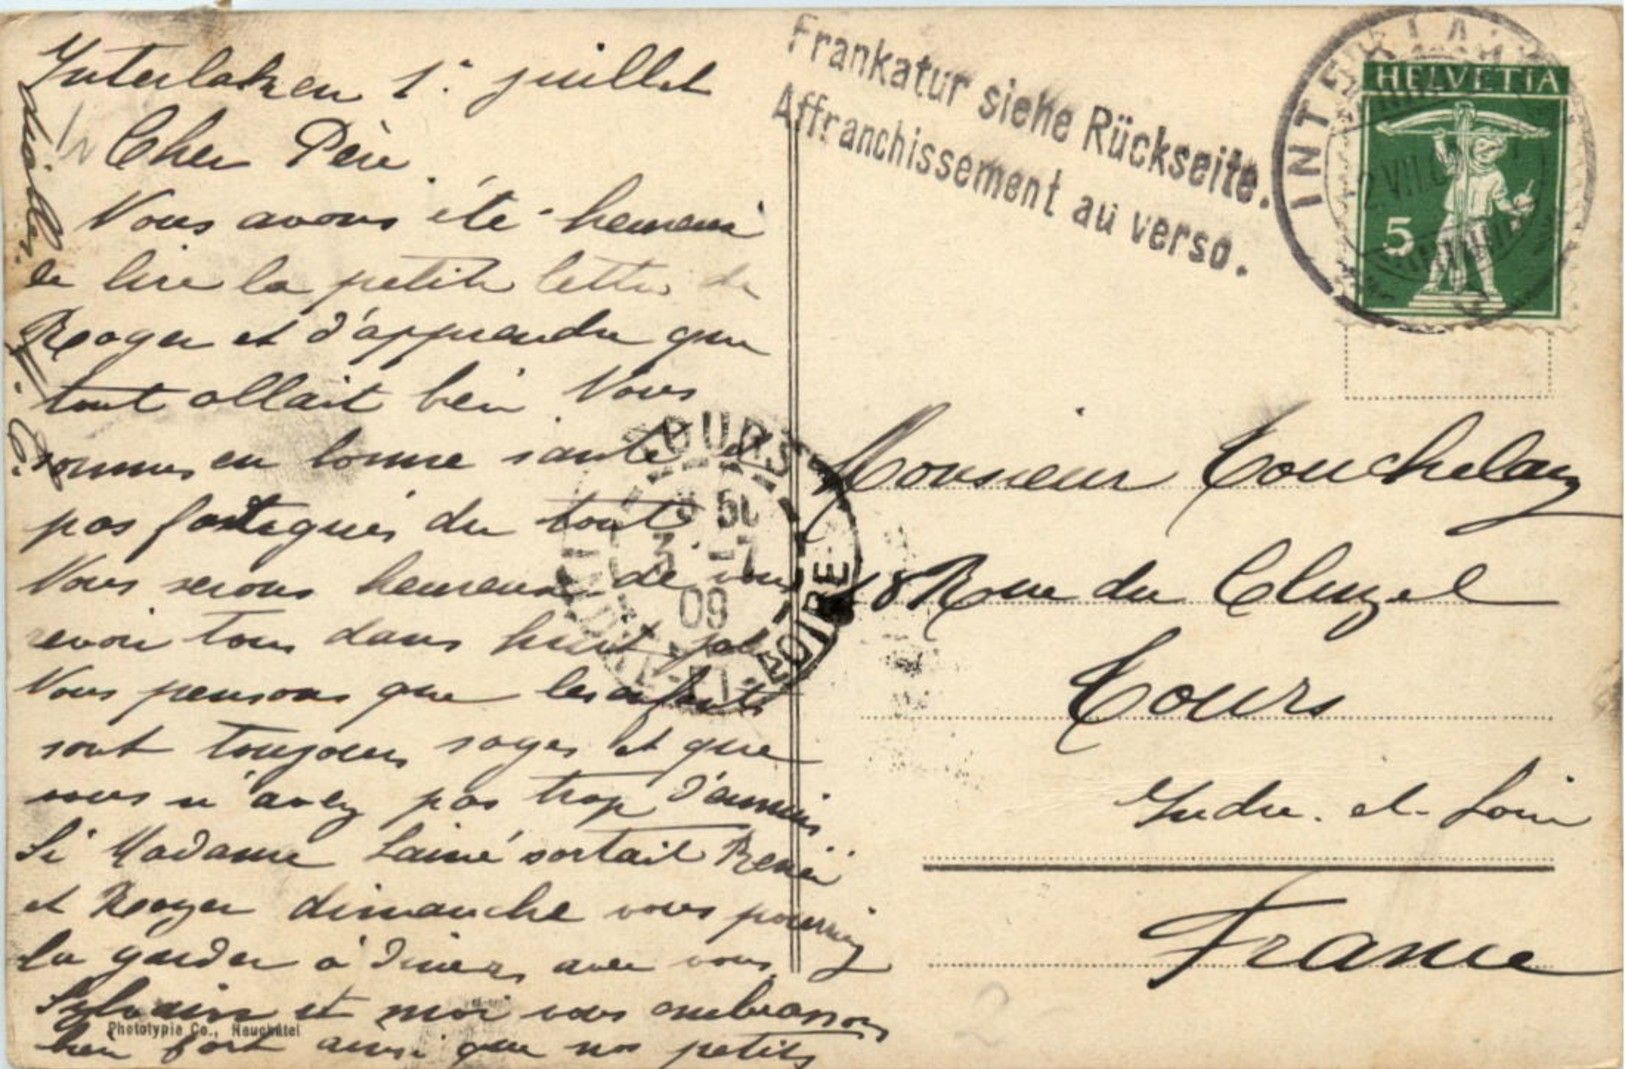 Interlaken 1er juillet
Cher Père
Nous avons été heureux
de lire la petite lettre de
Roger et d'apprendre que
tout allait bien Nous
sommes en bonne santé et
pas fatigués du tout
Nous serons heureux de vous
revoir tous dans huit jours
Nous pensons que les enfants
sont toujours sages et que
vous n'avez pas trop d'ennuis
Si Madame Lainé sortait Renée
et Roger dimanche vous pourriez
la garder à dîner avec vous
Sylvain et moi vous embrassons
bien fort ainsi que nos petits
Phototypie Co., Neuchâtel
Frankatur siehe Rückseite.
Affranchissement au verso.
INTERLAKEN
HELVETIA
5
TOURS
3 -7
09
INDRE-ET-LOIRE
Monsieur Touchelay
18 Rue du Cluzel
Tours
Indre-et-Loire
France